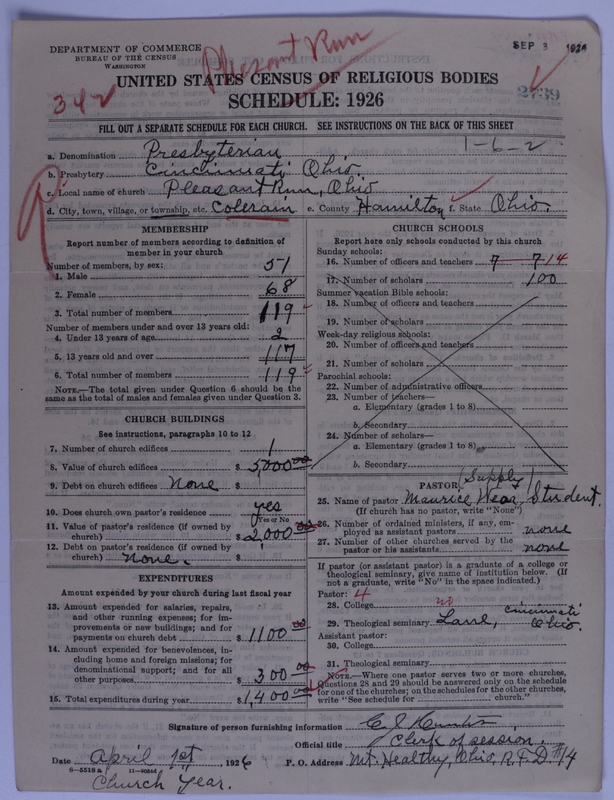 DEPARTMENT OF COMMERCE
BUREAU OF THE CENSUS
WASHINGTON
Pleasant Run
SEP 3 1926
UNITED STATES CENSUS OF RELIGIOUS BODIES
342
SCHEDULE: 1926
2739
FILL OUT A SEPARATE SCHEDULE FOR EACH CHURCH. SEE INSTRUCTIONS ON THE BACK OF THIS SHEET
1-6-2
a. Denomination Presbyterian
b. Presbytery Cincinnati Ohio
c. Local name of church Pleasant Run, Ohio
d. City, town, village, or township, etc. Colerain e. County Hamilton f. State Ohio.
MEMBERSHIP
Report number of members according to definition of
member in your church
Number of members, by sex:
1. Male 51
2. Female 68
3. Total number of members 119
Number of members under and over 13 years old:
4. Under 13 years of age 2
5. 13 years old and over 117
6. Total number of members 119
NOTE.—The total given under Question 6 should be the
same as the total of males and females given under Question 3.
CHURCH BUILDINGS
See instructions, paragraphs 10 to 12
7. Number of church edifices 1
8. Value of church edifices $ 5000 00
9. Debt on church edifices None $
10. Does church own pastor's residence yes
(Yes or No)
11. Value of pastor's residence (if owned by
church) $ 2,000 00
12. Debt on pastor's residence (if owned by
church) none. $
EXPENDITURES
Amount expended by your church during last fiscal year
13. Amount expended for salaries, repairs,
and other running expenses; for im-
provements or new buildings; and for
payments on church debt $ 1100 00
14. Amount expended for benevolences, in-
cluding home and foreign missions; for
denominational support; and for all
other purposes $ 300 00
15. Total expenditures during year $ 1,400 00
CHURCH SCHOOLS
Report here only schools conducted by this church
Sunday schools:
16. Number of officers and teachers 7 7 14
17. Number of scholars 100
Summer vacation Bible schools:
18. Number of officers and teachers
19. Number of scholars
Week-day religious schools:
20. Number of officers and teachers
21. Number of scholars
Parochial schools:
22. Number of administrative officers
23. Number of teachers—
a. Elementary (grades 1 to 8)
b. Secondary
24. Number of scholars—
a. Elementary (grades 1 to 8)
b. Secondary
PASTOR (Supply)
25. Name of pastor Maurice Wear, Student.
(If church has no pastor, write "None")
26. Number of ordained ministers, if any, em-
ployed as assistant pastors none
27. Number of other churches served by the
pastor or his assistants none
If pastor (or assistant pastor) is a graduate of a college or
theological seminary, give name of institution below. (If
not a graduate, write "No" in the space indicated.)
Pastor: 4
28. College no
29. Theological seminary Lane, Cincinnati Ohio.
Assistant pastor:
30. College
31. Theological seminary
NOTE.—Where one pastor serves two or more churches,
Questions 28 and 29 should be answered only on the schedule
for one of the churches; on the schedules for the other churches,
write "See schedule for church."
Signature of person furnishing information
Official title Clerk of session.
Date April 1st, 1926 P. O. Address Mt. Healthy, Ohio, R.F.D #14
Church Year.